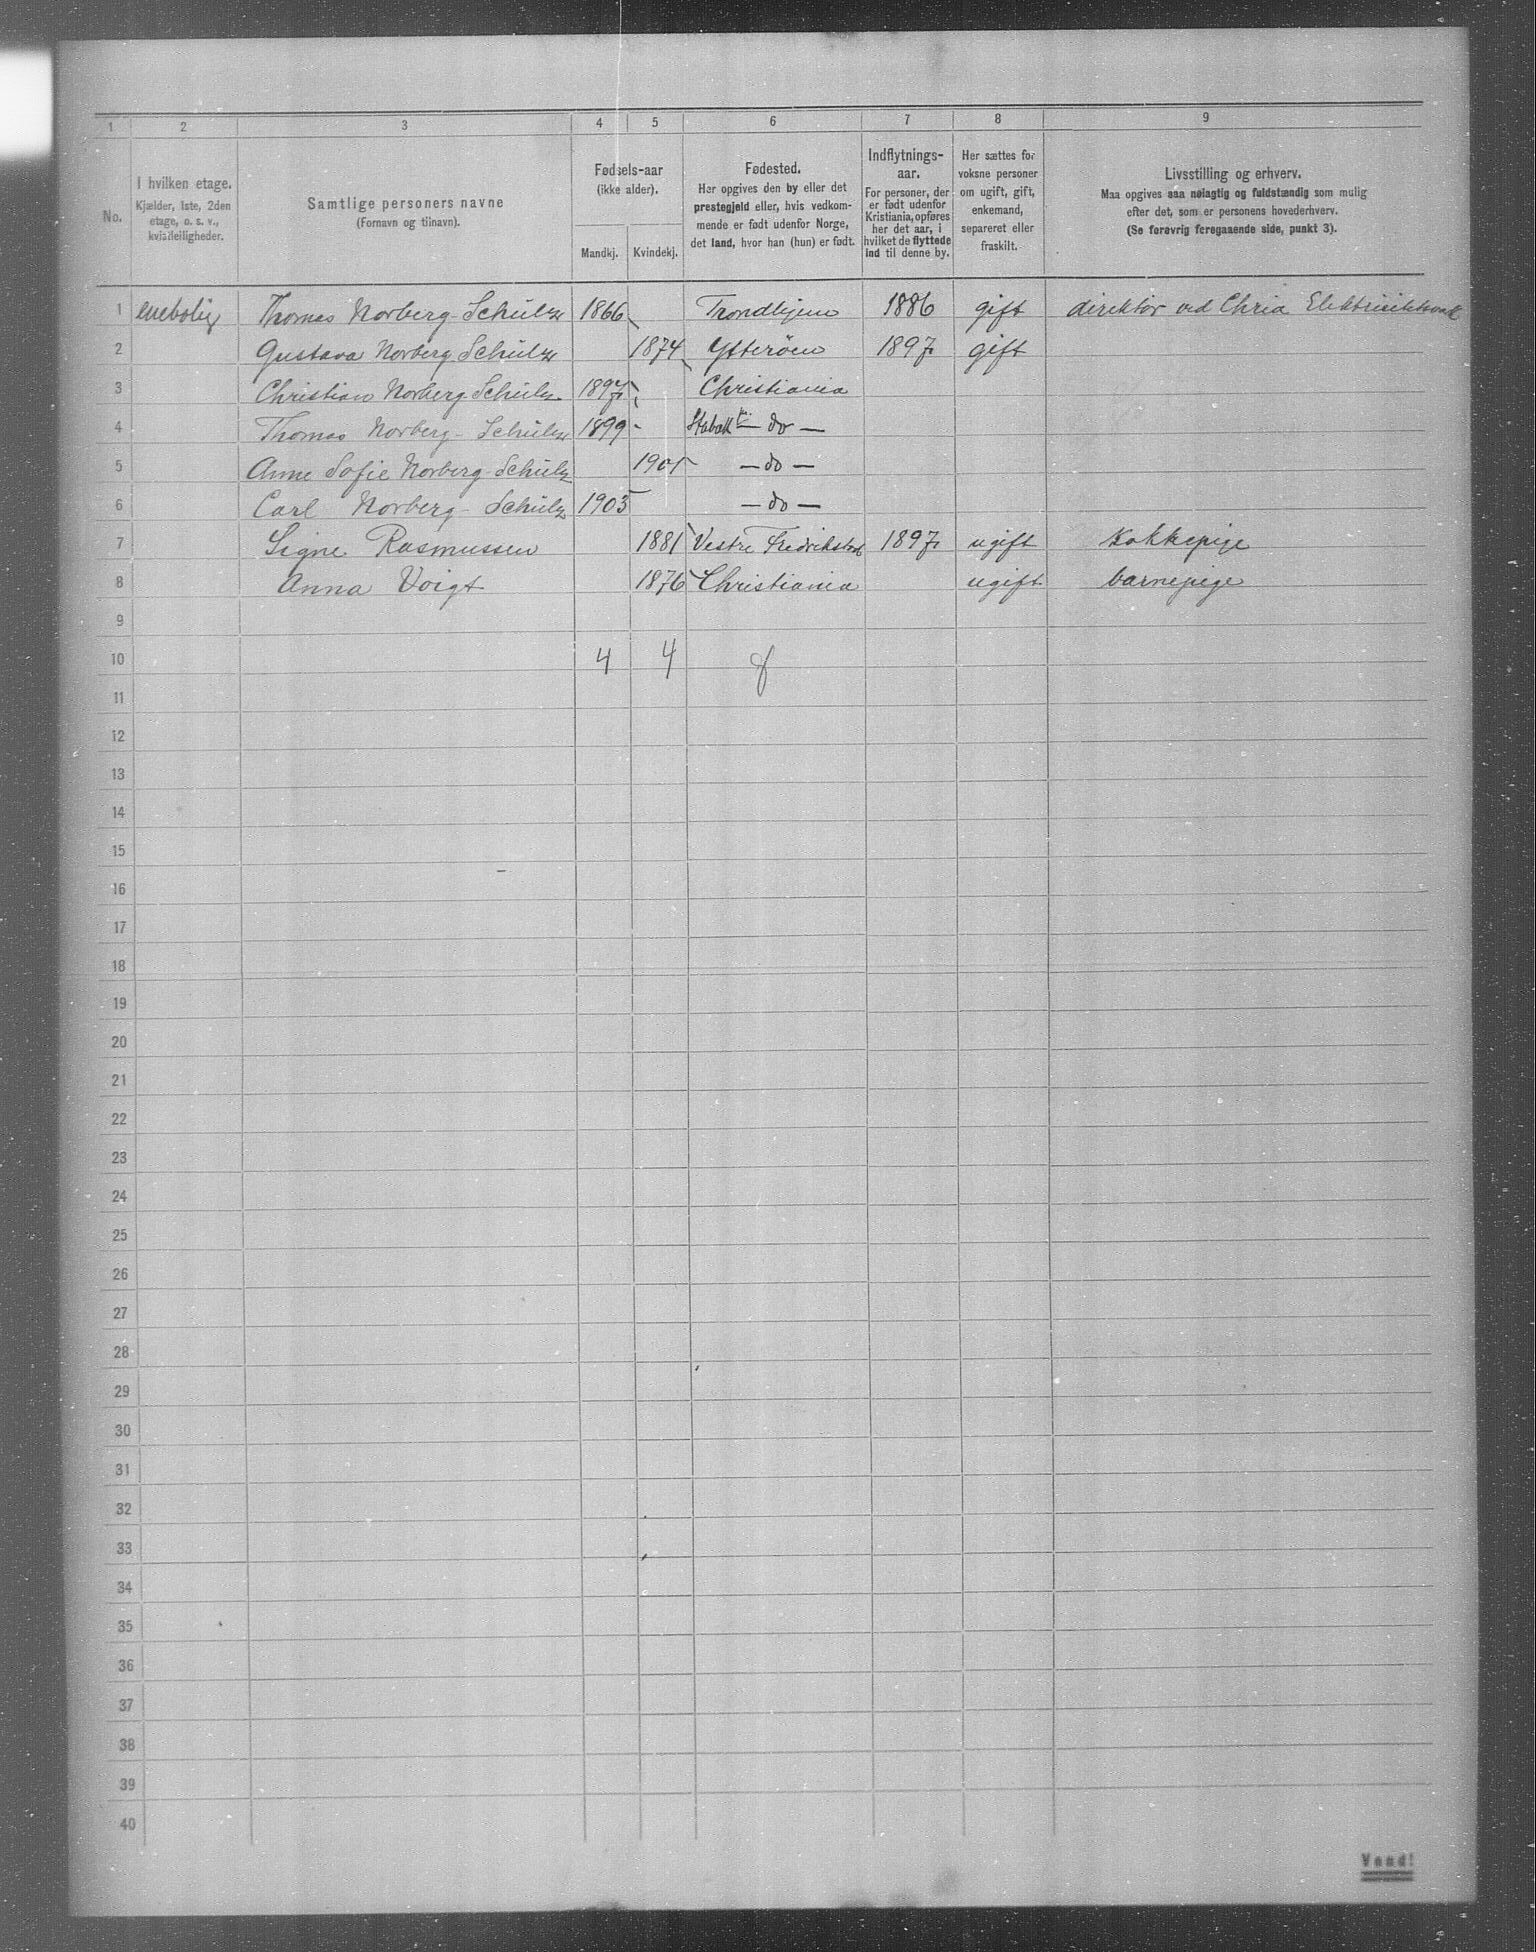 1 2 3 4 5 6 7 8 9
No.
I hvilken etage.
Kjælder, 1ste, 2den
etage, o. s. v.,
kvistleiligheder.
Samtlige personers navne
(Fornavn og tilnavn).
Fødsels-aar
(ikke alder).
Mandkj. Kvindekj.
Fødested.
Her opgives den by eller det
prestegjeld eller, hvis vedkom-
mende er født udenfor Norge,
det land, hvor han (hun) er født.
Indflytnings-
aar.
For personer, der
er født udenfor
Kristiania, opføres
her det aar, i
hvilket de flyttede
ind til denne by.
Her sættes for
voksne personer
om ugift, gift,
enkemand,
separeret eller
fraskilt.
Livsstilling og erhverv.
Maa opgives saa nøiagtig og fuldstændig som mulig
efter det, som er personens hovederhverv.
(Se forøvrig foregaaende side, punkt 3).
1 enebolig Thomas Norberg-Schülz 1866 Trondhjem 1886 gift direktør ved Chria Elektricitetsverk
2 Gustava Norberg Schülz 1874 Ytterøen 1897 gift
3 Christian Norberg Schülz 1897 Christiania
4 Thomas Norberg-Schülz 1899 Stabæk — do —
5 Anne Sofie Norberg-Schülz 1901 — do —
6 Carl Norberg-Schülz 1903 — do —
7 Signe Rasmussen 1881 Vestre Fredrikstad 1897 ugift Kokkepige
8 Anna Voigt 1876 Christiania ugift barnepige
9
10 4 4 8
11
12
13
14
15
16
17
18
19
20
21
22
23
24
25
26
27
28
29
30
31
32
33
34
35
36
37
38
39
40
Vend!